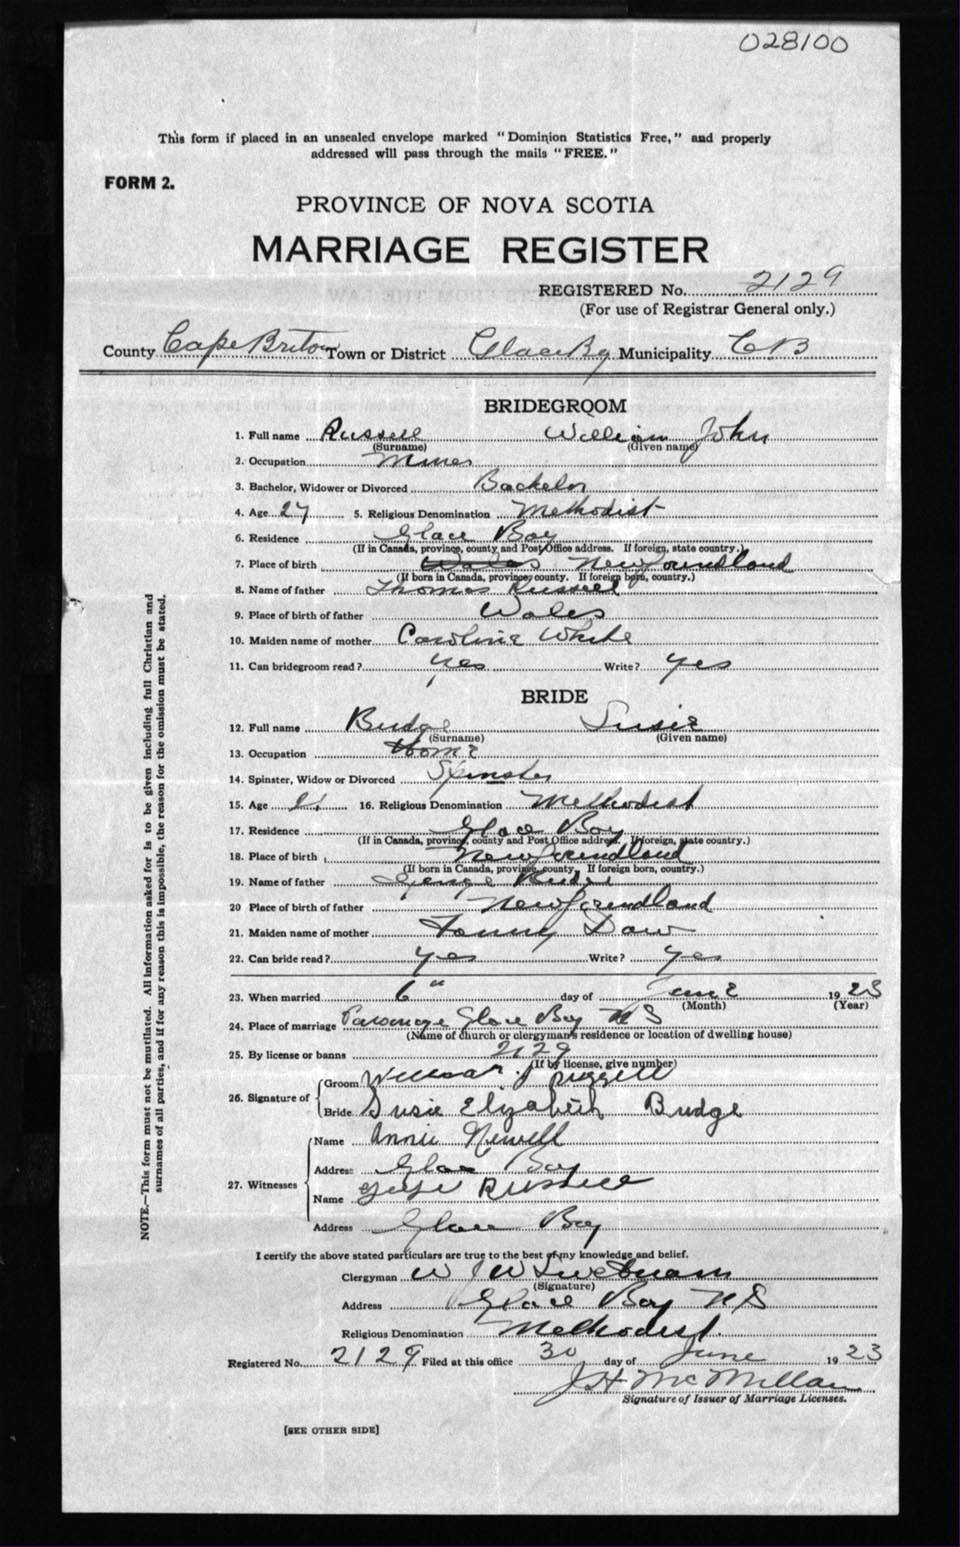 028100
This form if placed in an unsealed envelope marked "Dominion Statistics Free," and properly
addressed will pass through the mails "FREE."
FORM 2.
PROVINCE OF NOVA SCOTIA
MARRIAGE REGISTER
REGISTERED No. 2129
(For use of Registrar General only.)
County Cape Breton Town or District Glace By Municipality CB
BRIDEGROOM
1. Full name Russell William John
(Surname) (Given name)
2. Occupation Miner
3. Bachelor, Widower or Divorced Bachelor
4. Age 27 5. Religious Denomination Methodist
6. Residence Glace Bay
(If in Canada, province, county and Post Office address. If foreign, state country.)
7. Place of birth Wales Newfoundland
(If born in Canada, province, county. If foreign born, country.)
8. Name of father Thomas Russell
9. Place of birth of father Wales
10. Maiden name of mother Caroline White
11. Can bridegroom read? yes Write? yes
BRIDE
12. Full name Budge Susie
(Surname) (Given name)
13. Occupation Home
14. Spinster, Widow or Divorced Spinster
15. Age 21 16. Religious Denomination Methodist
17. Residence Glace Bay
(If in Canada, province, county and Post Office address. If foreign, state country.)
18. Place of birth Newfoundland
(If born in Canada, province, county. If foreign born, country.)
19. Name of father George
20 Place of birth of father Newfoundland
21. Maiden name of mother Fanny Daw
22. Can bride read? yes Write? yes
23. When married 6" day of June 1923
(Month) (Year)
24. Place of marriage Parsonage Glace Bay NS
(Name of church or clergyman's residence or location of dwelling house)
25. By license or banns 2129
(If by license, give number)
26. Signature of
Groom William J Russell
Bride Susie Elizabeth Budge
27. Witnesses
Name Annie Newell
Address Glace Bay
Name Russell
Address Glace Bay
I certify the above stated particulars are true to the best of my knowledge and belief.
Clergyman W J W
(Signature)
Address Glace Bay NS
Religious Denomination Methodist.
Registered No. 2129 Filed at this office 30 day of June 1923
J H McMillan
Signature of Issuer of Marriage Licenses.
[SEE OTHER SIDE]
NOTE.—This form must not be mutilated. All information asked for is to be given including full Christian and
surnames of all parties, and if for any reason this is impossible, the reason for the omission must be stated.